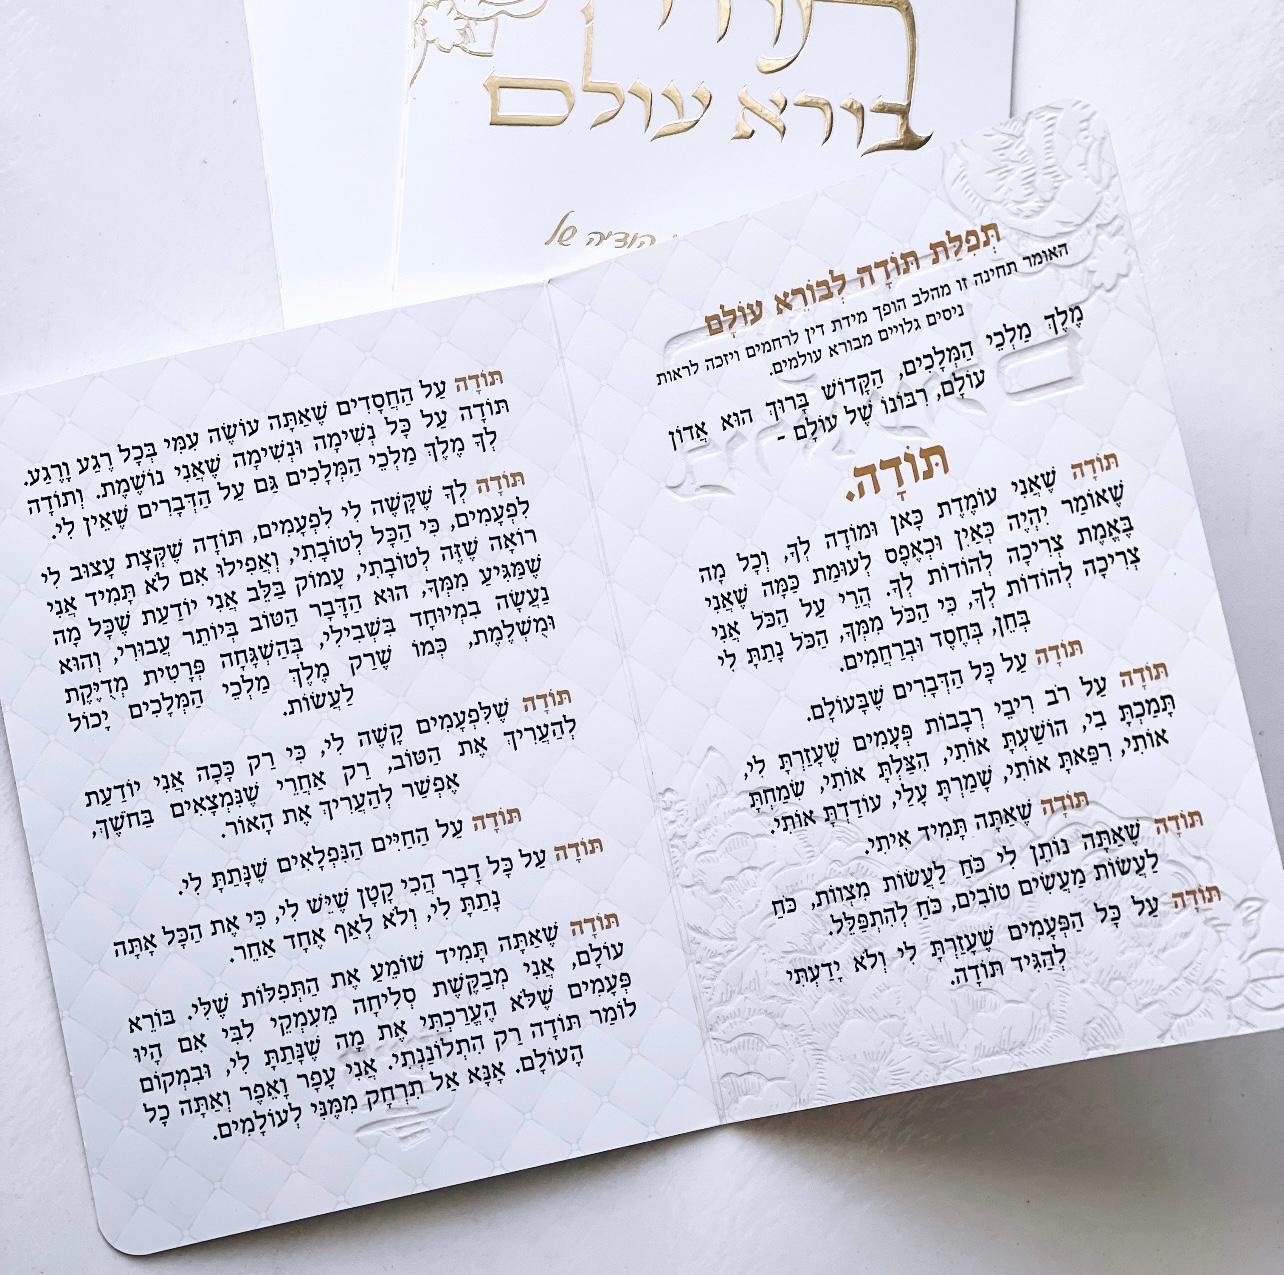 בורא עולם
הודיה של
תְּפִלַּת תּוֹדָה לְבוֹרֵא עוֹלָם
האומר תחינה זו מהלב הופך מידת דין לרחמים ויזכה לראות
ניסים גלויים מבורא עולמים.
מֶלֶךְ מַלְכֵי הַמְּלָכִים, הַקָּדוֹשׁ בָּרוּךְ הוּא אֲדוֹן
עוֹלָם, רִבּוֹנוֹ שֶׁל עוֹלָם -
תּוֹדָה.
תּוֹדָה שֶׁאֲנִי עוֹמֶדֶת כָּאן וּמוֹדָה לְךָ, וְכָל מַה
שֶׁאוֹמַר יִהְיֶה כְּאַיִן וּכְאֶפֶס לְעוּמַת כַּמָּה שֶׁאֲנִי
בֶּאֱמֶת צְרִיכָה לְהוֹדוֹת לְךָ. הֲרֵי עַל הַכֹּל אֲנִי
צְרִיכָה לְהוֹדוֹת לְךָ, כִּי הַכֹּל מִמְּךָ, הַכֹּל נָתַתָּ לִי
בְּחֵן, בְּחֶסֶד וּבְרַחֲמִים.
תּוֹדָה עַל כָּל הַדְּבָרִים שֶׁבָּעוֹלָם.
תּוֹדָה עַל רֹב רִיבֵי רְבָבוֹת פְּעָמִים שֶׁעָזַרְתָּ לִי,
תָּמַכְתָּ בִּי, הוֹשַׁעְתָּ אוֹתִי, הִצַּלְתָּ אוֹתִי, שִׂמַּחְתָּ
אוֹתִי, רִפֵּאתָ אוֹתִי, שָׁמַרְתָּ עָלַי, עוֹדַדְתָּ אוֹתִי.
תּוֹדָה שֶׁאַתָּה תָּמִיד אִיתִי.
תּוֹדָה שֶׁאַתָּה נוֹתֵן לִי כֹּחַ לַעֲשׂוֹת מִצְווֹת, כֹּחַ
לַעֲשׂוֹת מַעֲשִׂים טוֹבִים, כֹּחַ לְהִתְפַּלֵּל.
תּוֹדָה עַל כָּל הַפְּעָמִים שֶׁעָזַרְתָּ לִי וְלֹא יָדַעְתִּי
לְהַגִּיד תּוֹדָה.
תּוֹדָה עַל הַחֲסָדִים שֶׁאַתָּה עוֹשֶׂה עִמִּי בְּכָל רֶגַע וָרֶגַע.
תּוֹדָה עַל כָּל נְשִׁימָה וּנְשִׁימָה שֶׁאֲנִי נוֹשֶׁמֶת. וְתוֹדָה
לְךָ מֶלֶךְ מַלְכֵי הַמְּלָכִים גַּם עַל הַדְּבָרִים שֶׁאֵין לִי.
תּוֹדָה לְךָ שֶׁקָּשֶׁה לִי לִפְעָמִים, תּוֹדָה שֶׁקְּצָת עָצוּב לִי
לִפְעָמִים, כִּי הַכֹּל לְטוֹבָתִי, וַאֲפִילוּ אִם לֹא תָּמִיד אֲנִי
רוֹאָה שֶׁזֶּה לְטוֹבָתִי, עָמוֹק בַּלֵּב אֲנִי יוֹדַעַת שֶׁכָּל מַה
שֶּׁמַּגִּיעַ מִמְּךָ, הוּא הַדָּבָר הַטּוֹב בְּיוֹתֵר עֲבוּרִי, וְהוּא
נַעֲשָׂה בִּמְיוּחָד בִּשְׁבִילִי, בְּהַשְׁגָּחָה פְּרָטִית מְדֻיֶּקֶת
וּמֻשְׁלֶמֶת, כְּמוֹ שֶׁרַק מֶלֶךְ מַלְכֵי הַמְּלָכִים יָכוֹל
לַעֲשׂוֹת.
תּוֹדָה שֶׁלִּפְעָמִים קָשֶׁה לִי, כִּי רַק כָּכָה אֲנִי יוֹדַעַת
לְהַעֲרִיךְ אֶת הַטּוֹב, רַק אַחֲרֵי שֶׁנִּמְצָאִים בַּחֹשֶׁךְ,
אֶפְשַׁר לְהַעֲרִיךְ אֶת הָאוֹר.
תּוֹדָה עַל הַחַיִּים הַנִּפְלָאִים שֶׁנָּתַתָּ לִי.
תּוֹדָה עַל כָּל דָּבָר הֲכִי קָטָן שֶׁיֵּשׁ לִי, כִּי אֶת הַכֹּל אַתָּה
נָתַתָּ לִי, וְלֹא לְאַף אֶחָד אַחֵר.
תּוֹדָה שֶׁאַתָּה תָּמִיד שׁוֹמֵעַ אֶת הַתְּפִלּוֹת שֶׁלִּי. בּוֹרֵא
עוֹלָם, אֲנִי מְבַקֶּשֶׁת סְלִיחָה מֵעִמְקֵי לִבִּי אִם הָיוּ
פְּעָמִים שֶׁלֹּא הֶעֱרַכְתִּי אֶת מָה שֶׁנָּתַתָּ לִי, וּבִמְקוֹם
לוֹמַר תּוֹדָה רַק הִתְלוֹנַנְתִּי. אֲנִי עָפָר וָאֵפֶר וְאַתָּה כָּל
הָעוֹלָם. אָנָּא אַל תִּרְחַק מִמֶּנִּי לְעוֹלָמִים.